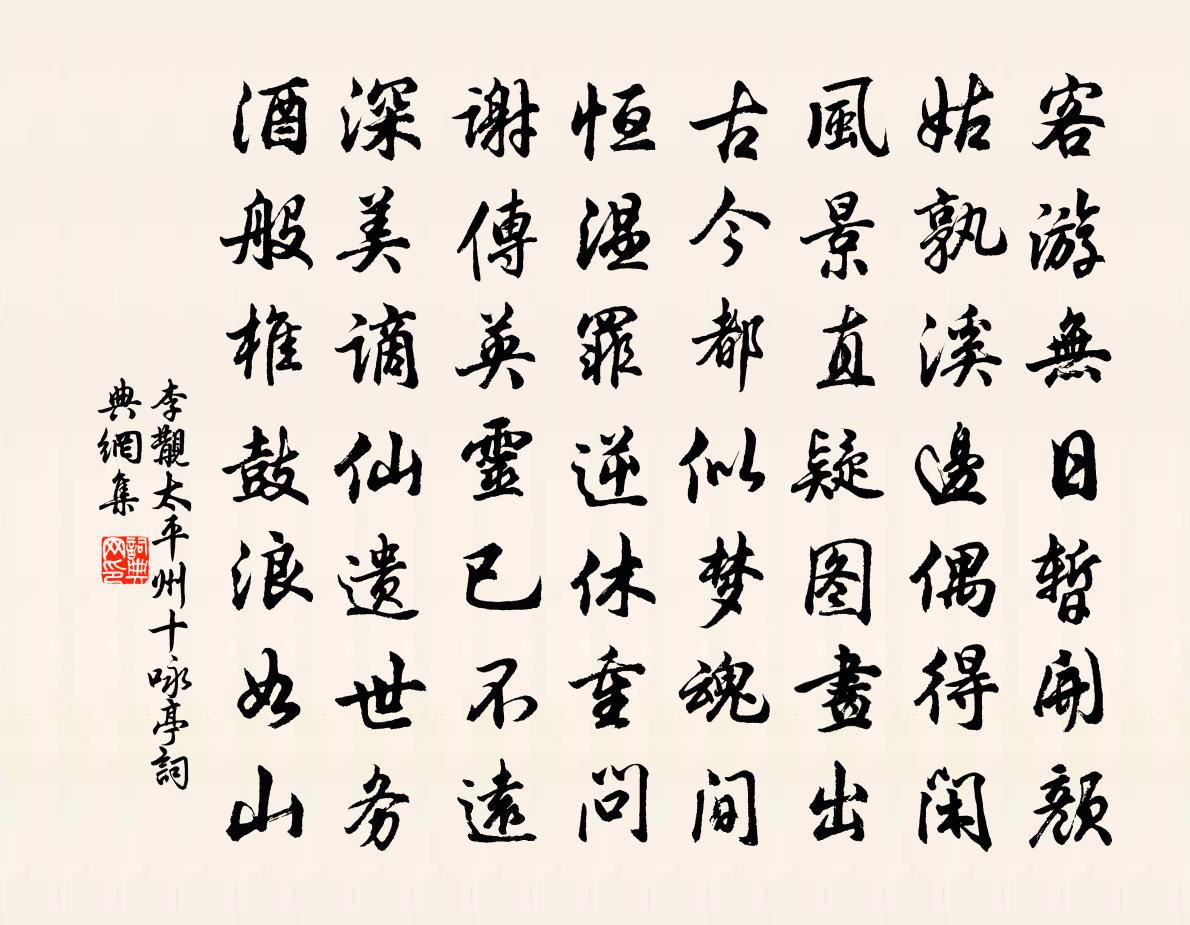 客游無日暫開顏
姑孰溪邊偶得閑
風景直疑图畫出
古今都似梦魂間
恒温罪逆休重問
謝傳英靈已不遠
深美謫仙遗世务
酒般椎鼓浪如山
李覯太平州十咏亭詞
典網集
詞典
网印